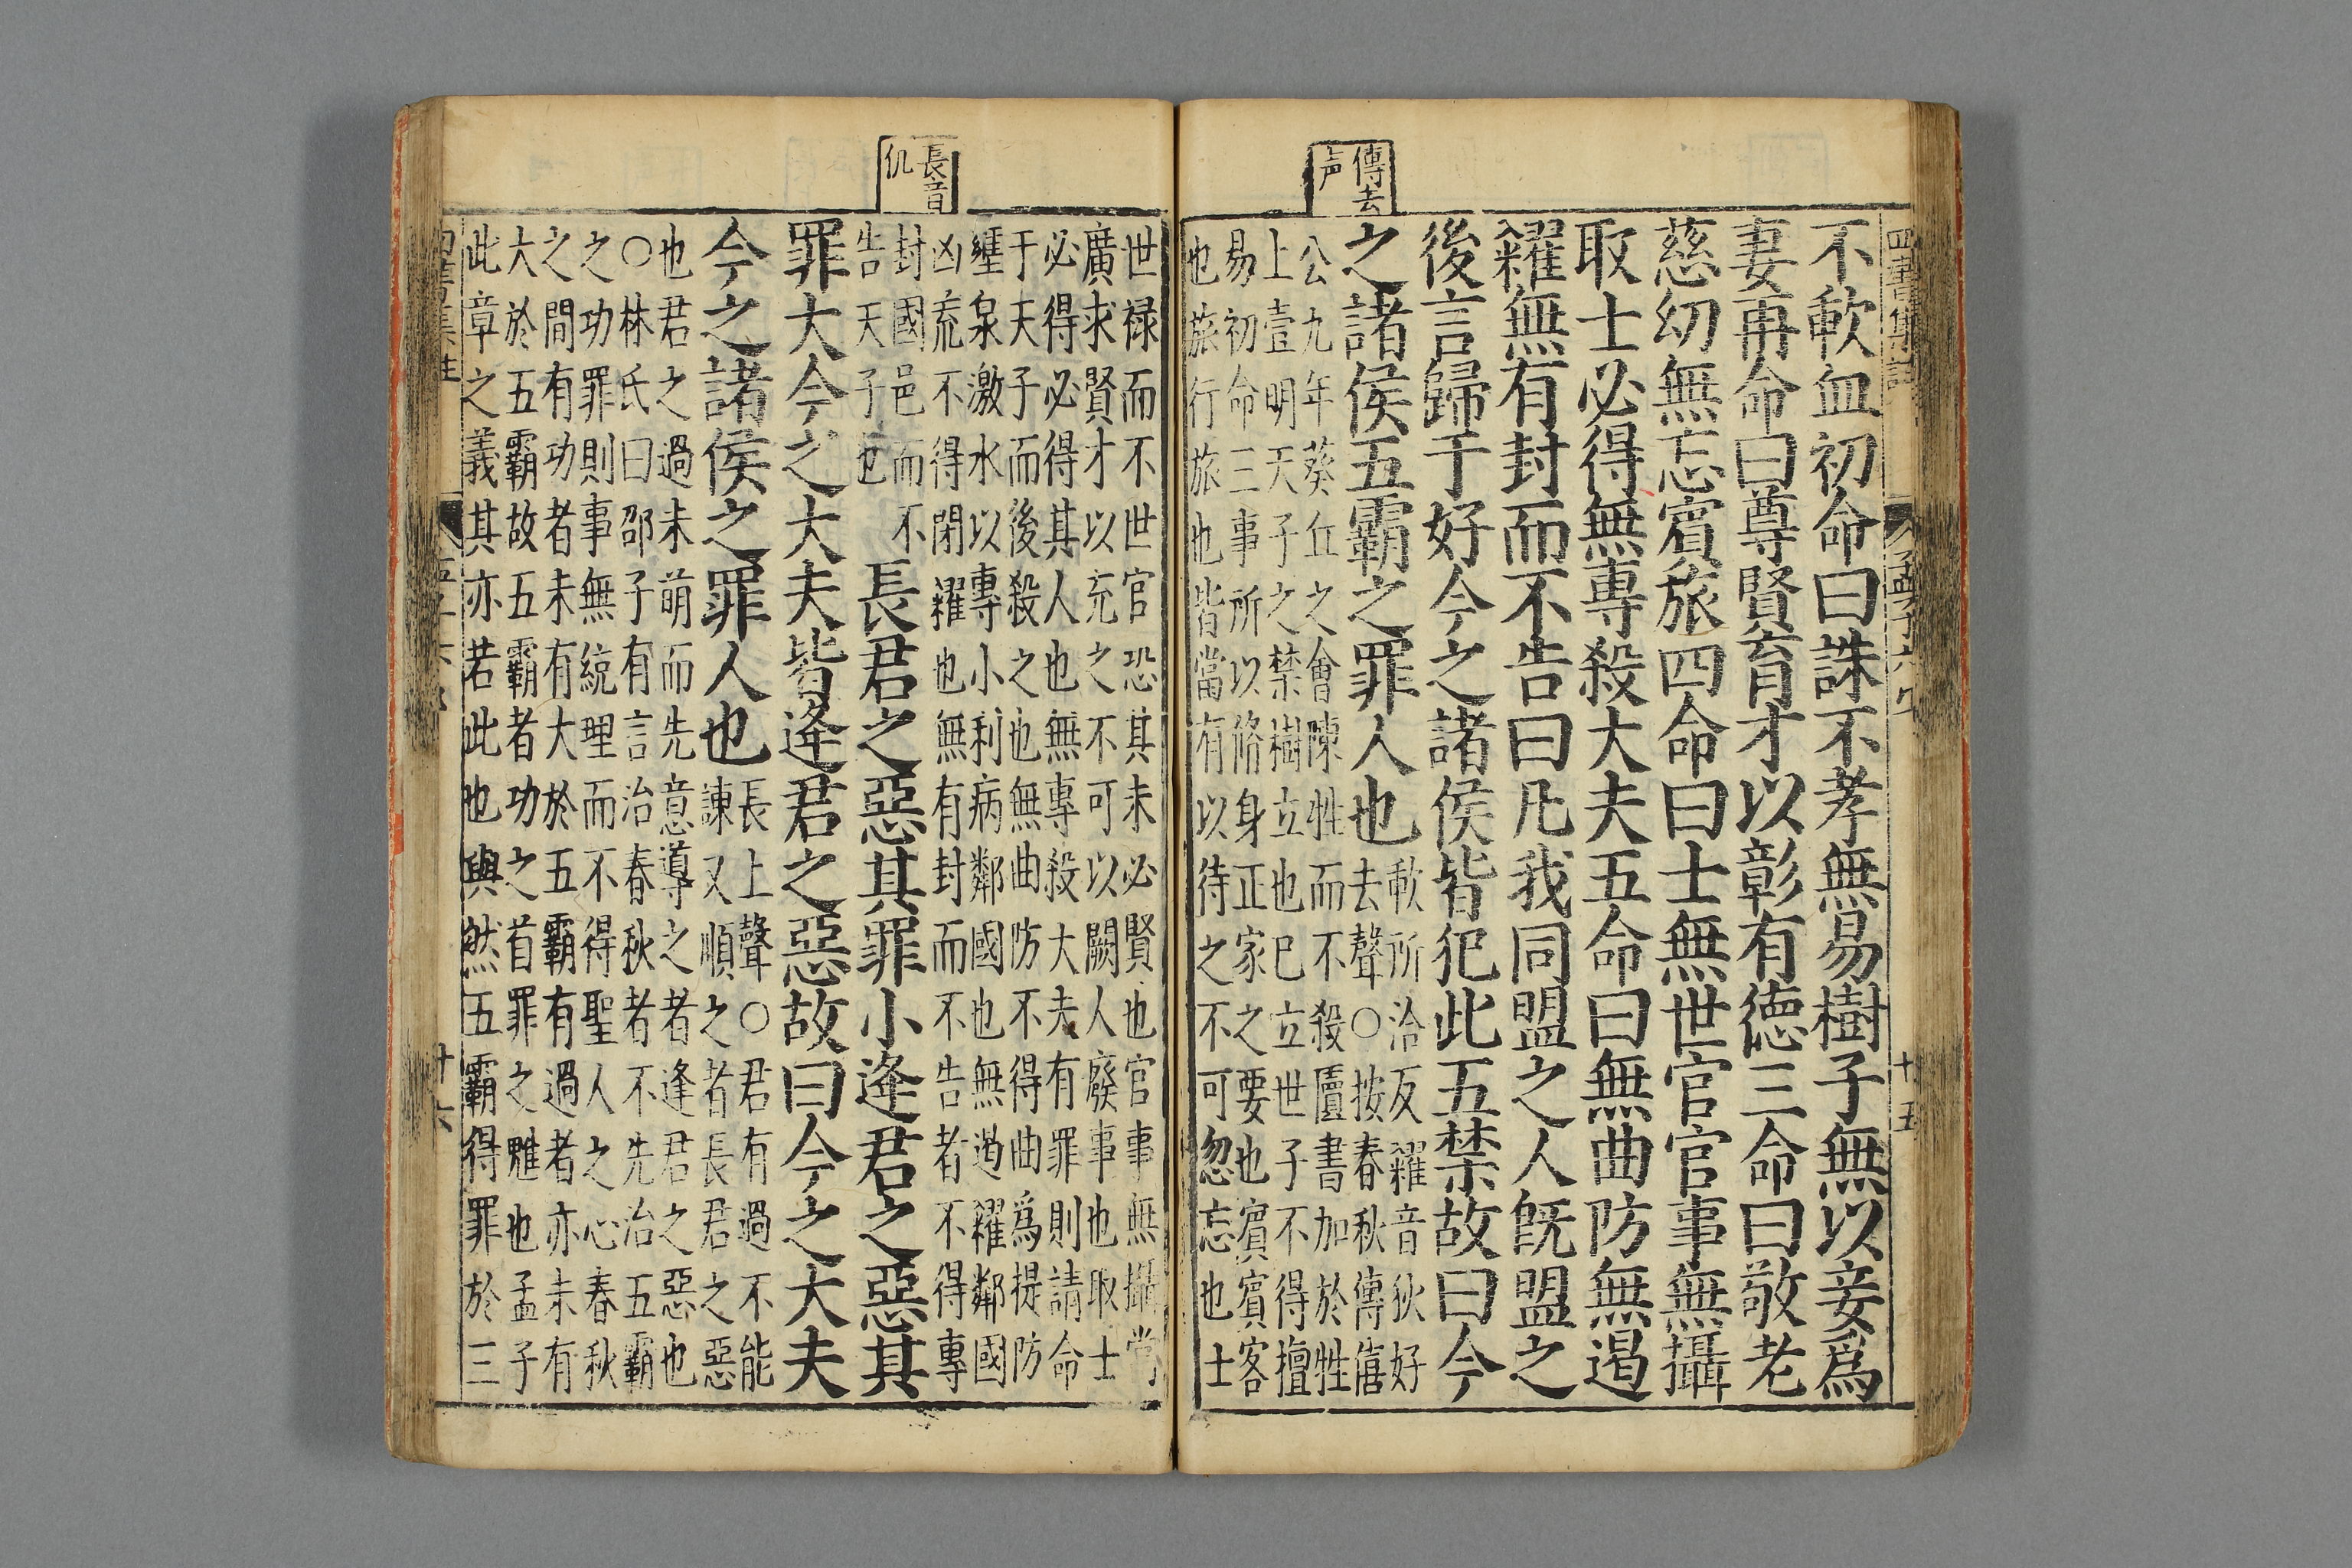 四書集註
孟子六
十五
傳去
声
不歃血初命曰誅不孝無易樹子無以妾爲
妻再命曰尊賢育才以彰有德三命曰敬老
慈幼無忘賓旅四命曰士無世官官事無攝
取士必得無專殺大夫五命曰無曲防無遏
糴無有封而不告曰凡我同盟之人旣盟之
後言歸于好今之諸侯皆犯此五禁故曰今
之諸侯五霸之罪人也
歃所洽反糴音狄好
去聲○按春秋傳僖
公九年葵丘之會陳牲而不殺讀書加於牲
上壹明天子之禁樹立也已立世子不得擅
易初命三事所以脩身正家之要也賓賓客
也旅行旅也皆當有以待之不可忽忘也士
世禄而不世官恐其未必賢也官事無攝當
廣求賢才以充之不可以闕人廢事也取士
必得必得其人也無專殺大夫有罪則請命
于天子而後殺之也無曲防不得曲爲提防
壅泉激水以專小利病鄰國也無遏糴鄰國
凶荒不得閉糴也無有封而不告者不得專
封國邑而不
告天子也
長音
仉
長君之惡其罪小逢君之惡其
罪大今之大夫皆逢君之惡故曰今之大夫
今之諸侯之罪人也
長上聲○君有過不能
諫又順之者長君之惡
也君之過未萌而先意導之者逢君之惡也
○林氏曰邵子有言治春秋者不先治五霸
之功罪則事無統理而不得聖人之心春秋
之間有功者未有大於五霸有過者亦未有
大於五霸故五霸者功之首罪之魁也孟子
此章之義其亦若此也與然五霸得罪於三
十六